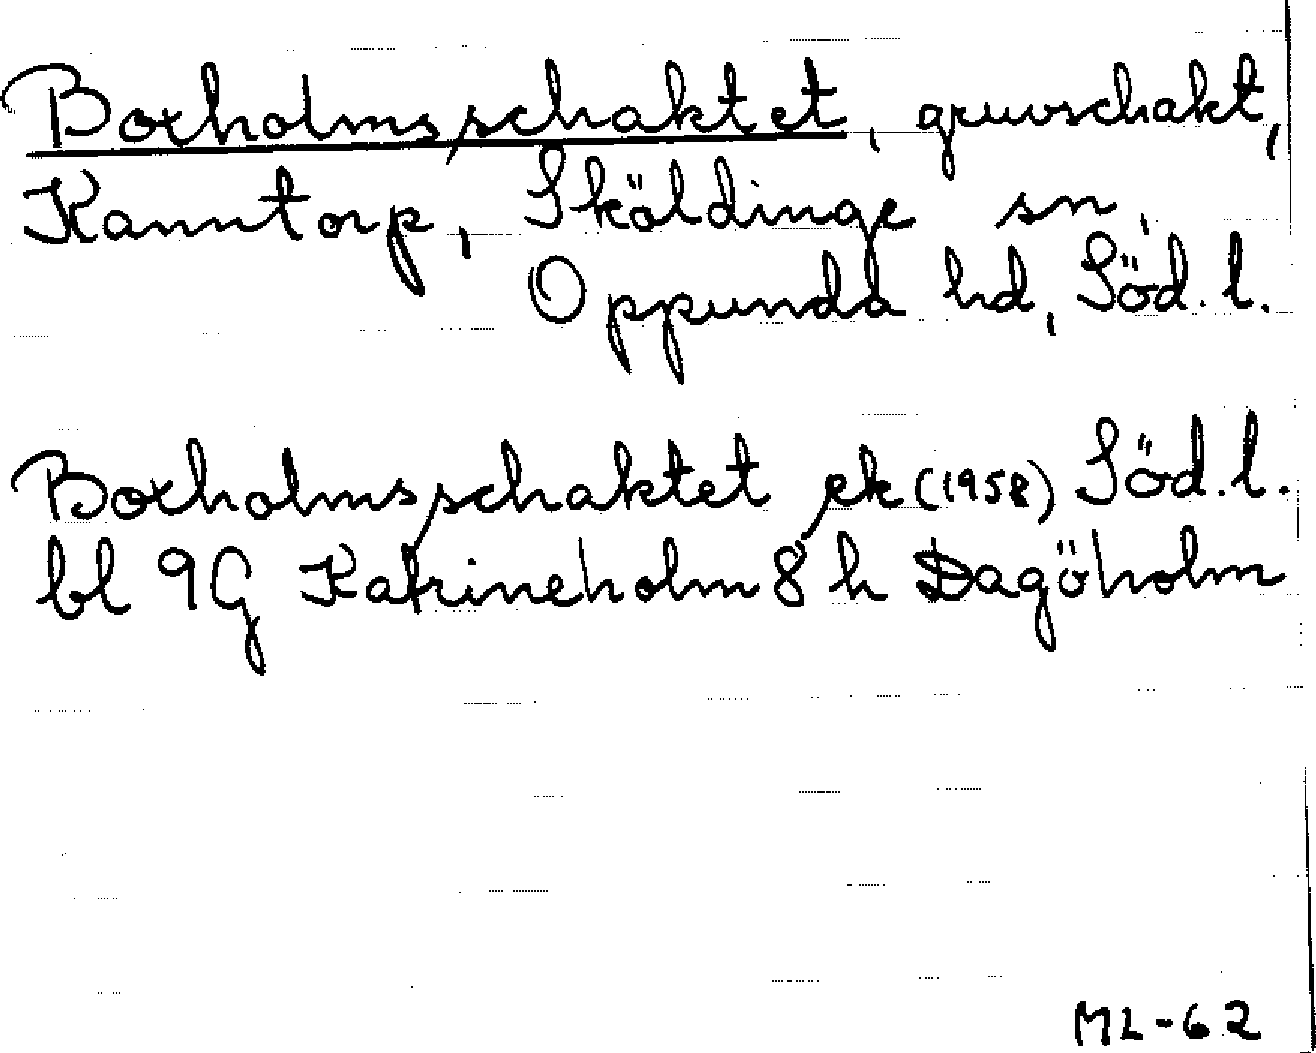 Boxholmsschaktet, gruvschakt,
Kanntorp, Sköldinge sn,
Oppunda hd, Söd. l.
Boxholmsschaktet ek (1958) Söd. l.
bl 9G Katrineholm 8 h Dagöholm
ML-62